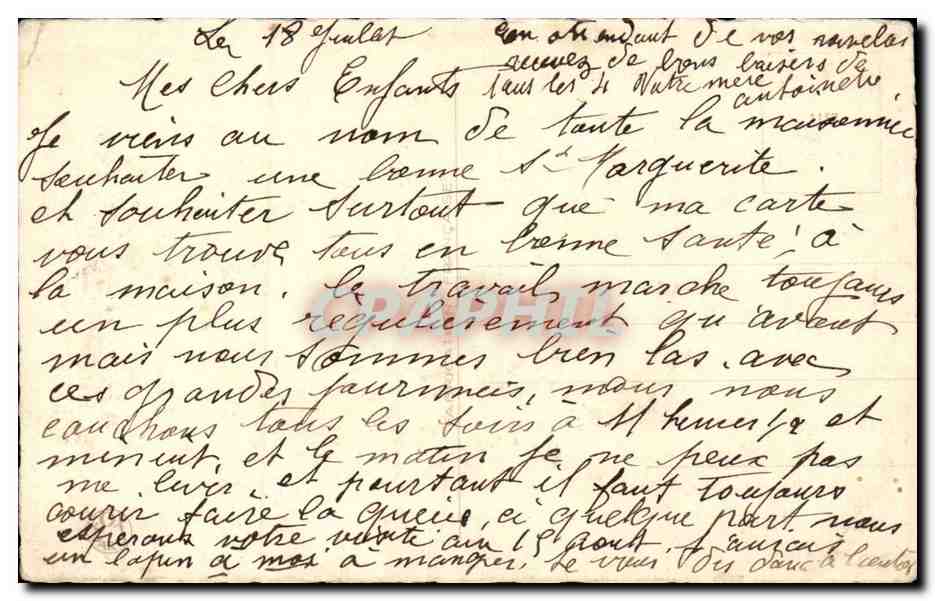 Le 18 Juillet
Mes chers Enfants
Je viens au nom de toute la maisonnée
souhaiter une bonne Ste Marguerite.
et souhaiter surtout que ma carte
vous trouve tous en bonne santé, à
la maison. le travail marche toujours
un plus regulièrement qu'avant
mais nous sommes bien las. avec
ces grandes journées, nous nous
couchons tous les soirs à 11 heures 1/2 et
minuit, et le matin je ne peux pas
me lever, et pourtant il faut toujours
courir faire la queue, à quelque part nous
esperons votre visite au 15 Aout, j'aurais
un lapin à moi à manger, je vous dis donc à bientôt
en attendant de vos nouvelles
recevez de bons baisers de
tous les 4 Votre mère
antoinette
CPAPHIL